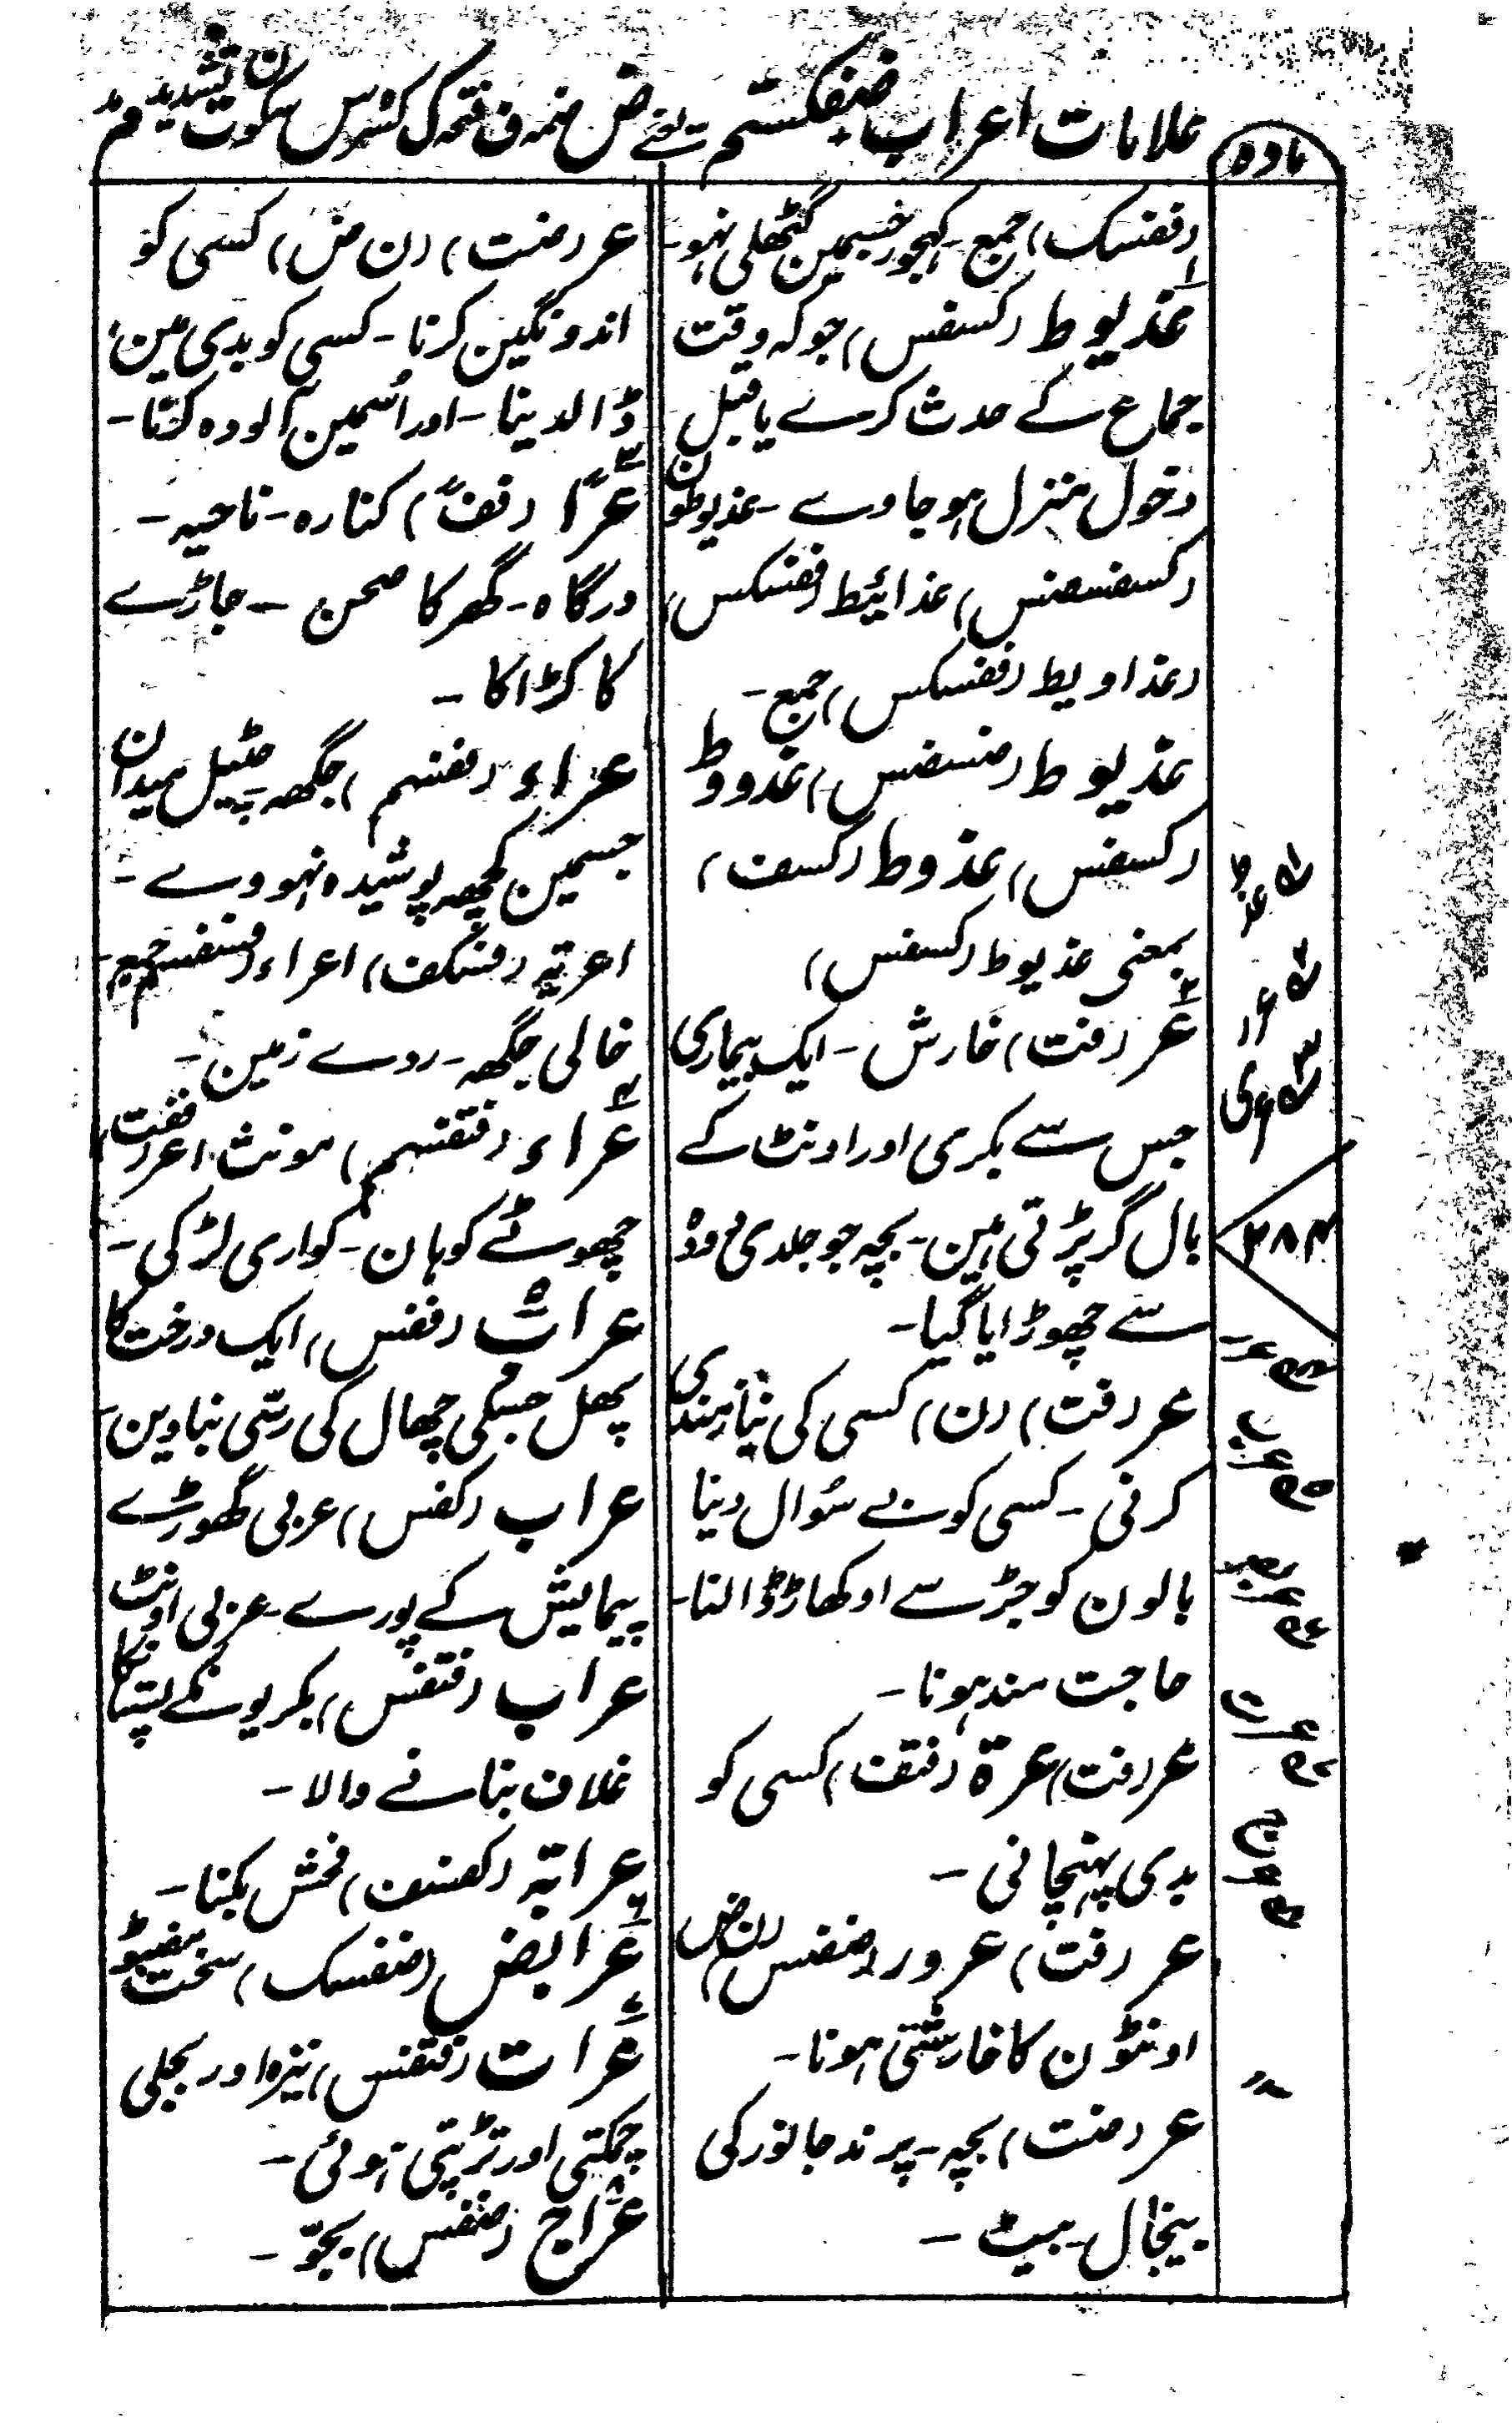 علامات اعراب ضفکستم یعنے ض ضمہ ف فتحہ ک کسرہ س سکون ت تشدید م مد
مادہ
(ففسک) جمع - کہجور جسمین گٹھلی نہو -
عذیوط (کسفس) جو کہ وقت
جماع کے حدث کرے یا قبل
دخول منزل ہو جاوے - عذیوطون
(کسفسضس) عذائیط (ففسکس)
(عذاویط (ففسکس) جمع -
عذیوط (ضسضس) عذووط
(کسفس) عذوط (کسف)
بمعنی عذیوط (کسفس)
عر (فت) خارش - ایک بیماری
جس سے بکری اور اونٹ کے
بال گر پڑتی ہین - بچہ جو جلدی دودہ
سے چھوڑایا گیا -
عر (فت) (ن) کسی کی نیازمندی
کرنی - کسی کو بے سوال دینا
بالون کو جڑ سے اوکھاڑ ڈالنا -
حاجت مند ہونا -
عر (فت) عرة (فتف) کسی کو
بدی پہنچانی -
عر (فت) عرور (ضفس) (ن ض)
اونٹون کا خارشتی ہونا -
عر (ضت) بچہ - پرند جانور کی
پنخال - بیٹ -
عر (ضت) (ن ض) کسی کو
اندوہگین کرنا - کسی کو بدی مین
ڈالدینا - اور اُسمین آلودہ کرنا -
عرًا (ففً) کنارہ - ناحیہ -
درگاہ - گھر کا صحن - جاڑے
کا کڑاکا -
عراء (ففسم) جگھہ چٹیل میدان
جسمین کچھہ پوشیدہ نہووے -
اعریۃ (فسکف) اعراء (فسفسم) جمع -
خالی جگھہ - روے زمین -
عراء (فتفسم) مونث اعر (ففت)
چھوٹے کوہان - کواری لڑکی -
عراب (ففس) ایک درخت کا
پھل جسکی چھال کی رسّی بناوین -
عراب (کفس) عربی گھوڑے
پیمایش کے پورے - عربی اونٹ
عراب (فتفس) بکریونکے پستان کا
غلاف بنانے والا -
عرابۃ (کفسف) فحش بکنا -
عرابض (ضفسک) سخت مضبوط
عرات (فتفس) نیزہ اور بجلی
چمکتی اور تڑپتی ہوئی -
عراج (ضفس) بجّو -
۱ھ عذط
۲ھ عر
۳ھ عری
۳۸۴
۴ھ عر
۵ھ عرب
۶ھ عربض
۷ھ عرت
۸ھ عرج